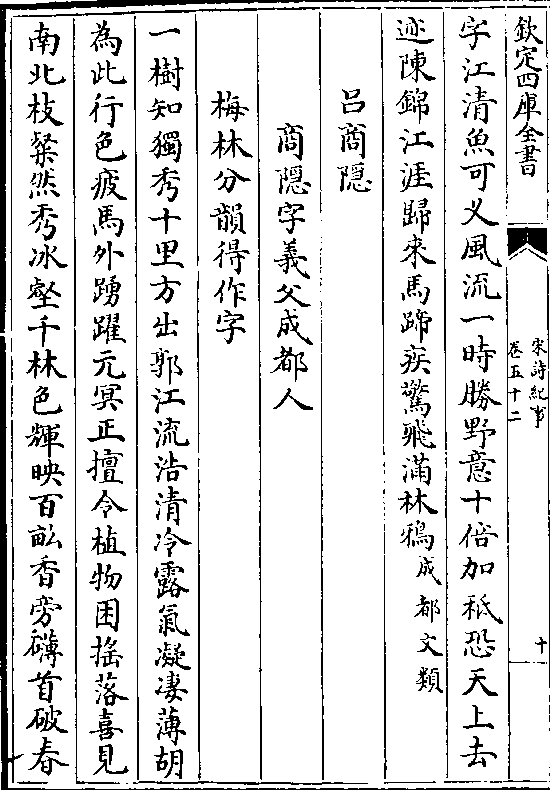 欽定四庫全書
宋詩紀事
卷五十二
十
字江清魚可㸚風流一時勝野意十倍加秪恐天上去
迹陳錦江涯歸來馬蹄疾驚飛滿林鴉成都文類
吕商隠
商隠字義父成都人
梅林分韻得作字
一樹知獨秀十里方出郭江流浩清冷露氣凝凄薄胡
為此行色疲馬外踴躍元冥正擅令植物困揺落喜見
南北枝粲然秀冰壑千林色輝映百畝香旁礴首破春